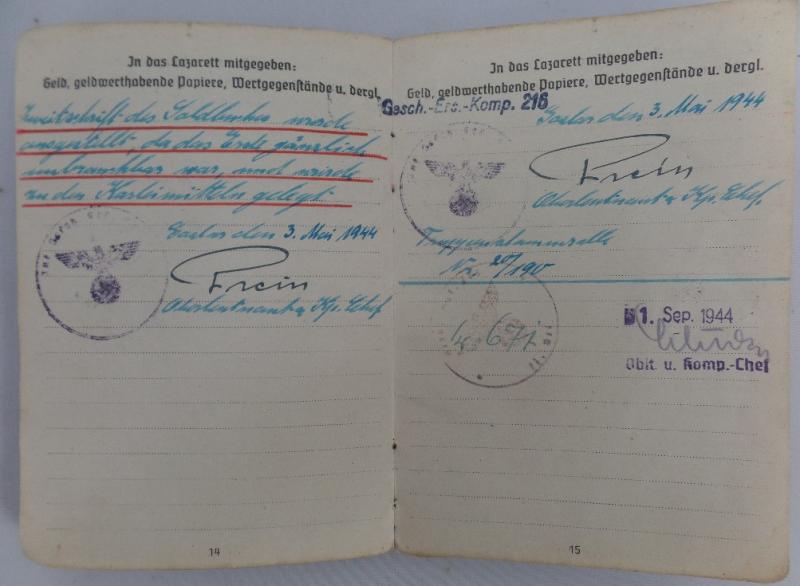 In das Lazarett mitgegeben:
Geld, geldwerthabende Papiere, Wertgegenstände u. dergl.
Zweitschrift des Soldbuches wurde
ausgestellt, da das Erste gänzlich
unbrauchbar war, und wurde
zu den Karteimitteln gelegt
Goslar den 3. Mai 1944
Prein
Oberleutnant u. Kp. Chef
14
In das Lazarett mitgegeben:
Geld, geldwerthabende Papiere, Wertgegenstände u. dergl.
Gesch.-Ers.-Komp. 216
Goslar den 3. Mai 1944
Prein
Oberleutnant u. Kp. Chef
Truppenstammrolle
Nr. 20/190
671
1. Sep. 1944
Oblt. u. Komp.-Chef
15